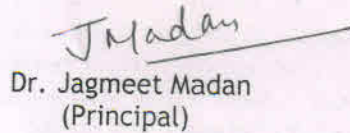 JMadan
Dr. Jagmeet Madan
(Principal)